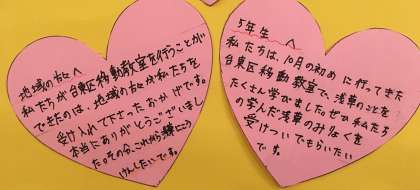 地域の方々へ
私たちが台東区移動教室を行うことが
できたのは、地域の方々が私たちを
受け入れて下さったおかげです。
本当にありがとうございまし
た。その分、これから
けんしたいです。
5年生へ
私たちは、10月の初めに行ってきた
台東区移動教室で、浅草のことを
たくさん学びました。ぜひ私たち
の学んだ浅草のみりょくを
受けついでもらいたい
です。